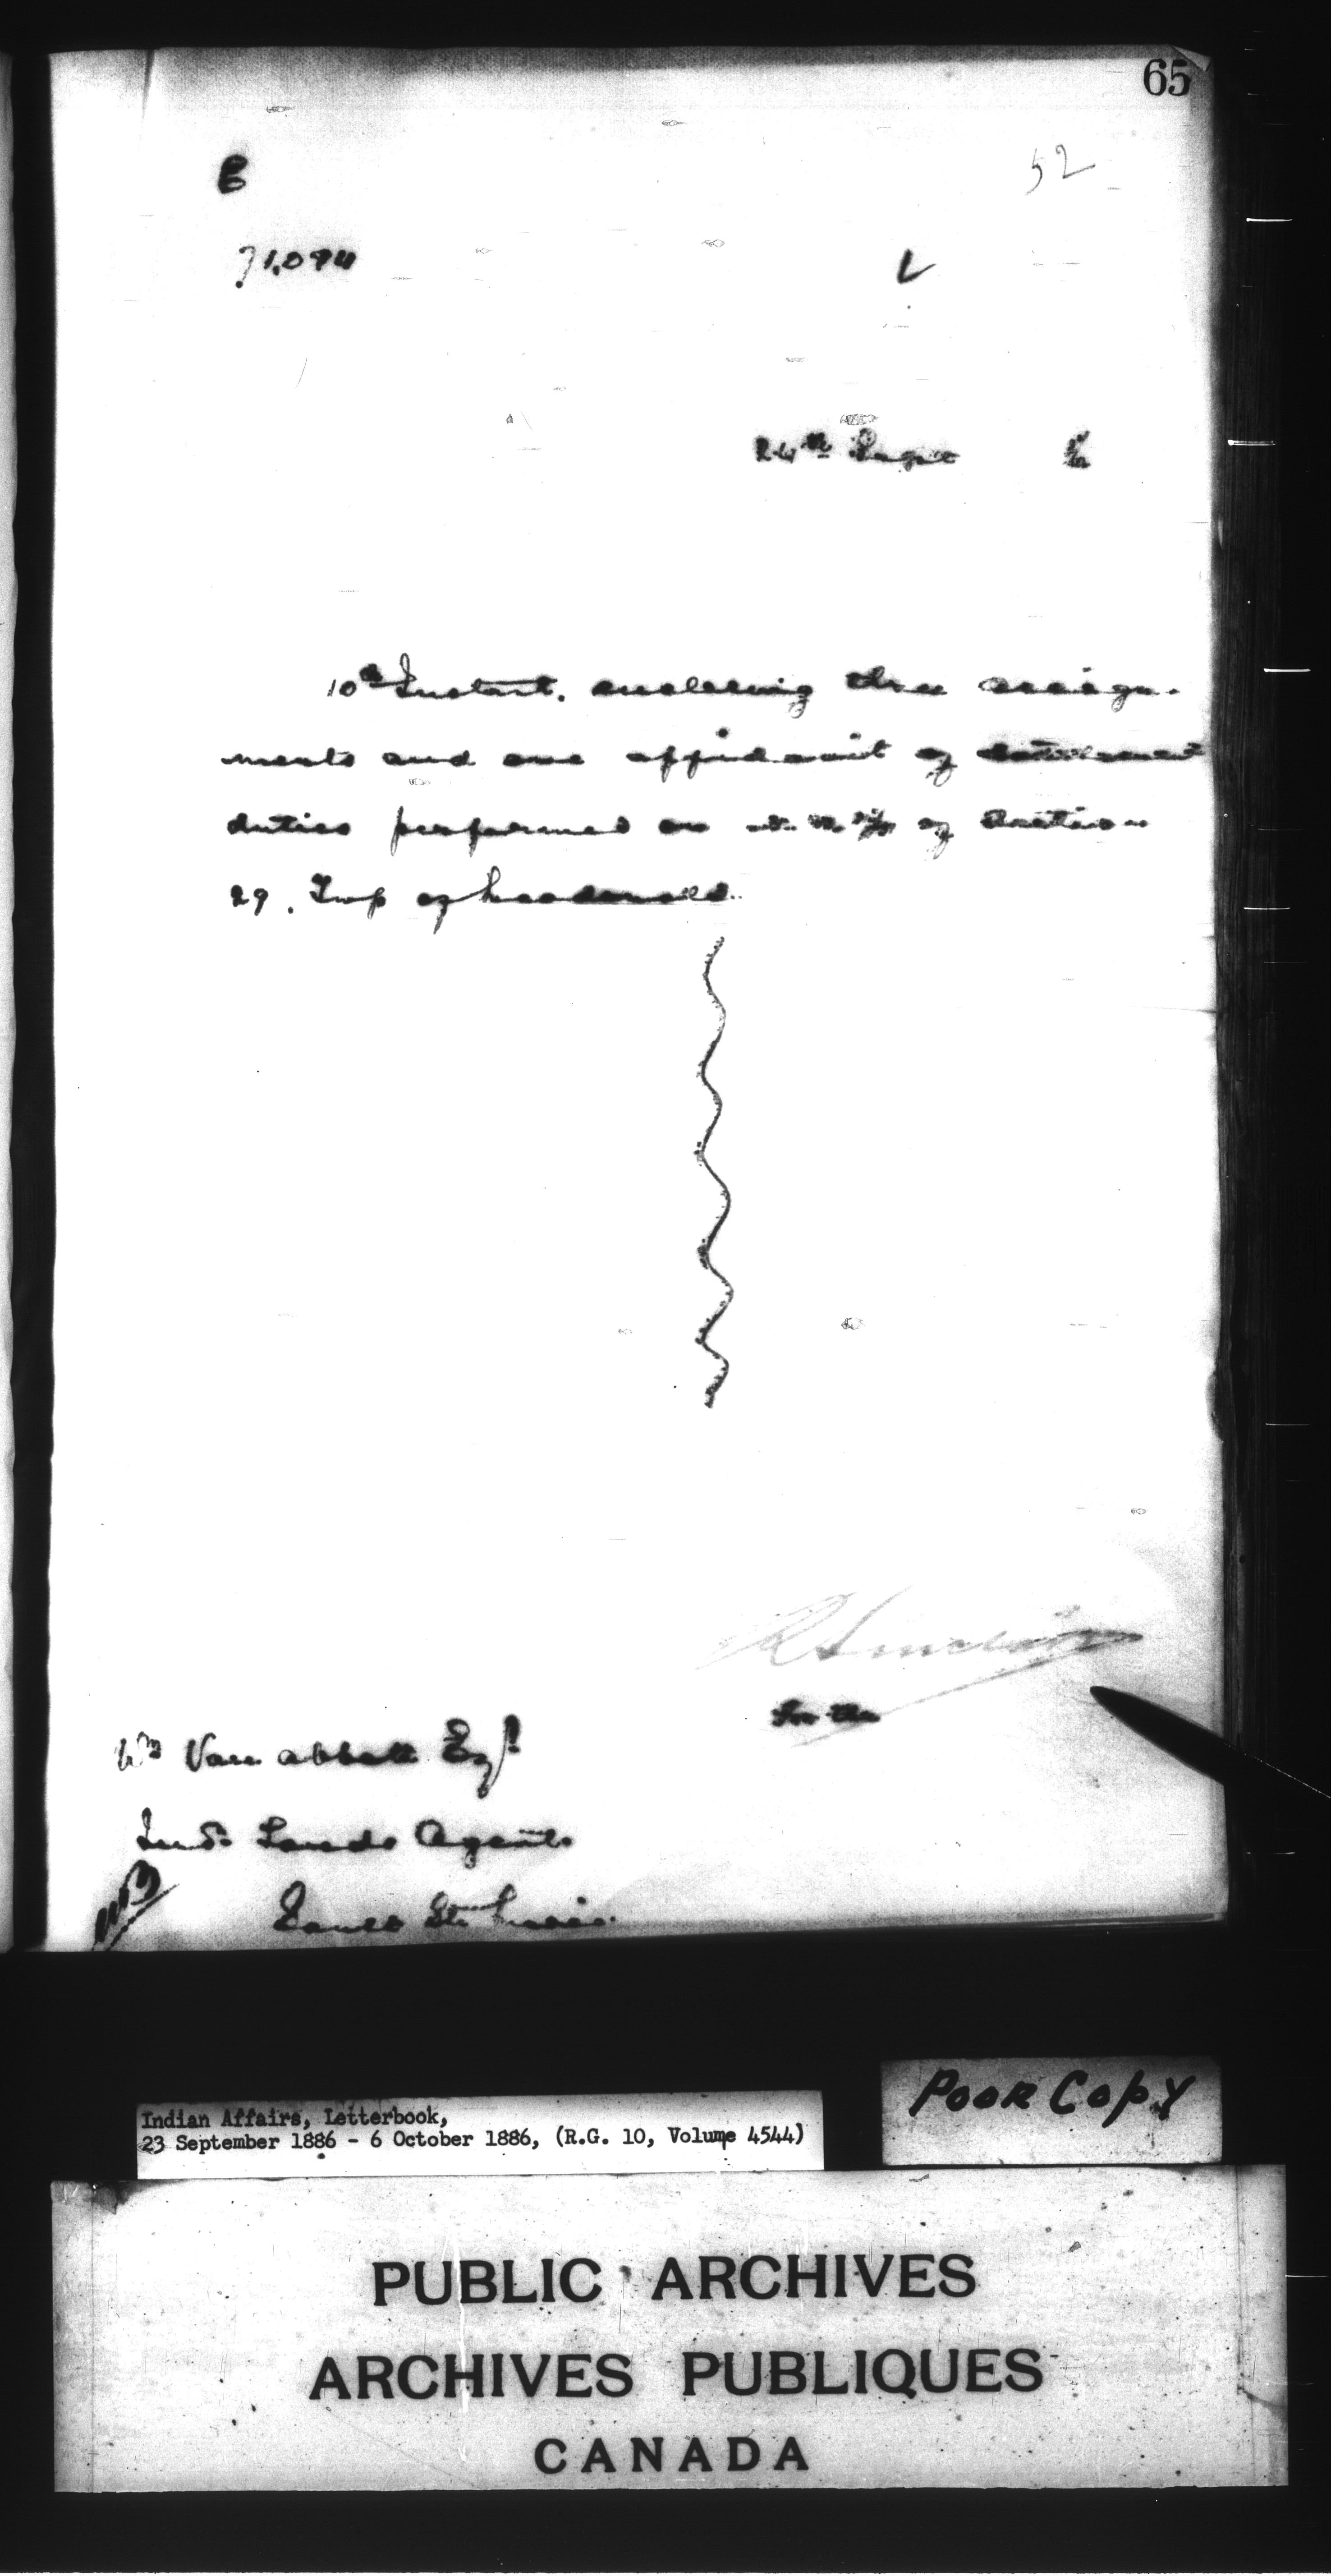 65
52
B
71,094
L
24th Sept 6
10th Instant. enclosing three assign-
ments and one affidavit of settlement
duties performed on of Section
29. Twp of Macdonald.
R Sinclair
For the
Wm Van abbott Esqr
Ind. Lands Agent
Sault Ste Marie.
Indian Affairs, Letterbook,
23 September 1886 - 6 October 1886, (R.G. 10, Volume 4544)
POOR COPY
PUBLIC ARCHIVES
ARCHIVES PUBLIQUES
CANADA